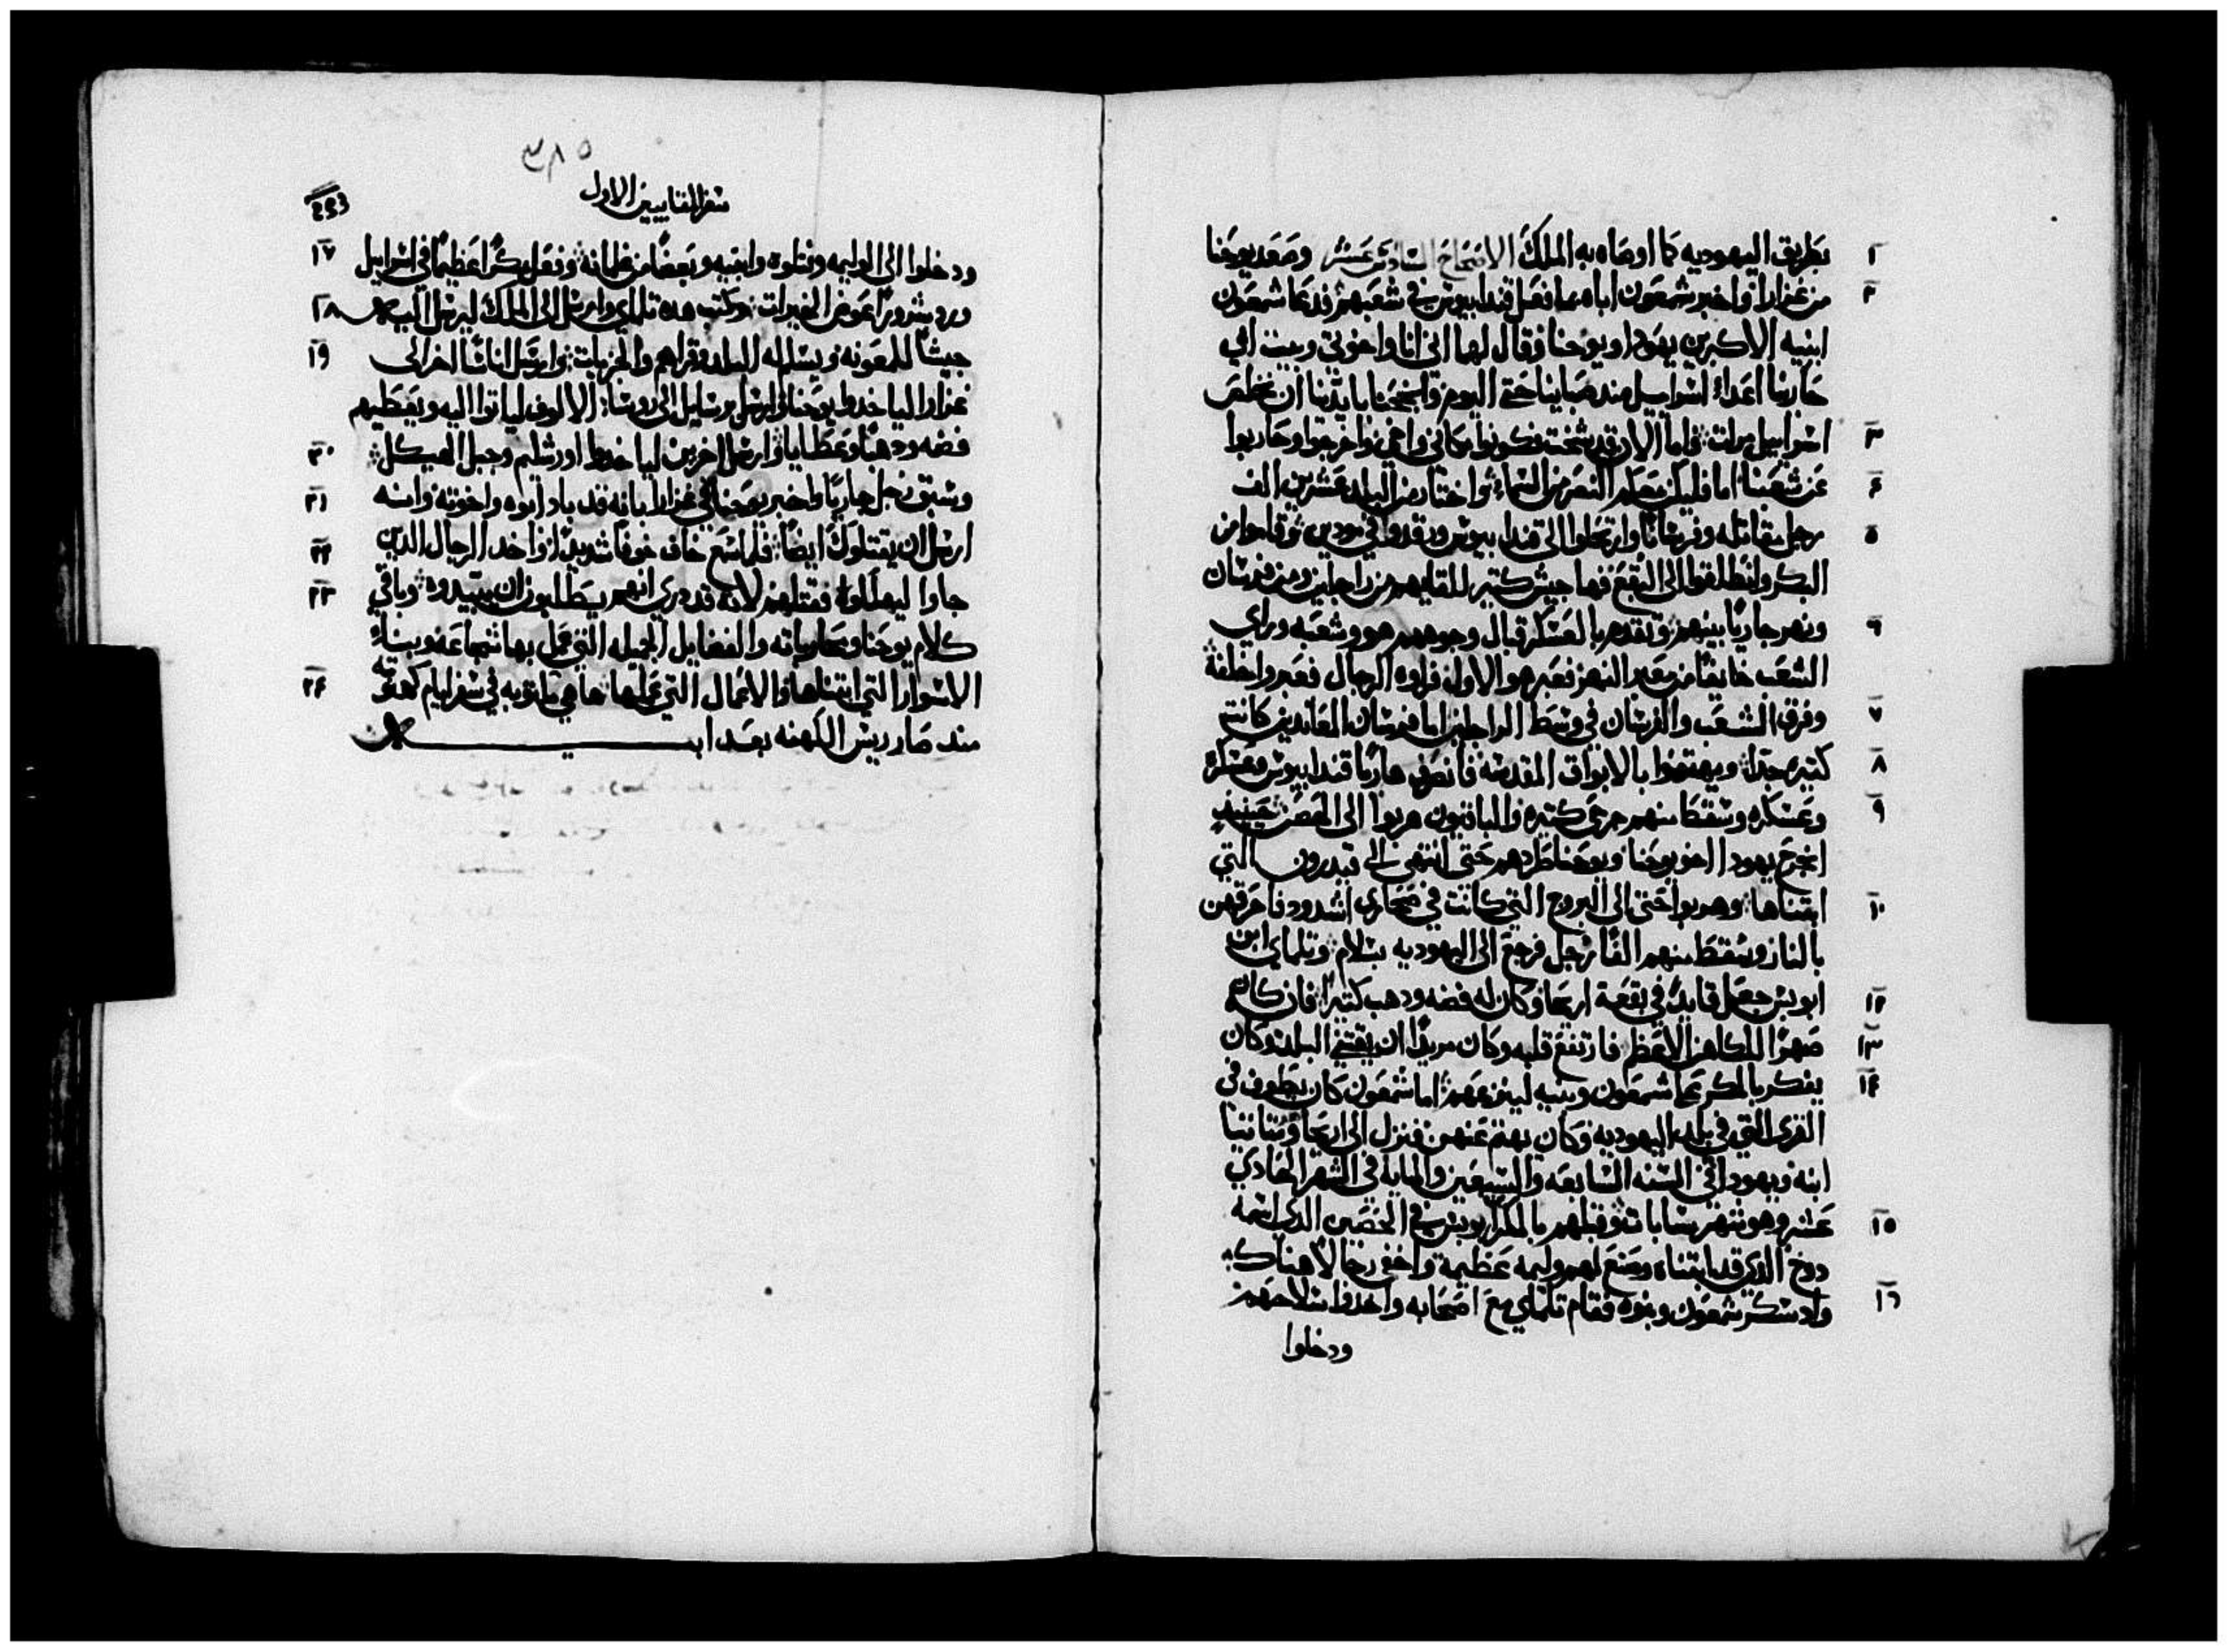 بطريق اليهوديه كما اوصاه به الملك الاصحاح السادس عشر وصعد يوحنا ١
من غزارا واخبر شمعون اباه بما فعل قندابيوس في شعبهم فدعا شمعون ٢
ابنيه الاكبرين يهودا ويوحنا وقال لهما اني انا واخوتي وبيت ابي
حاربنا اعداء اسراييل منذ صبايانا حتي اليوم وانجحنا بايدينا ان نخلص
اسراييل مرات فاما الان قد شخت فكونوا مكاني واخي واخرجوا وحاربوا ٣
عن شعبنا اما فليكن معكم النصر من السماء واختار من البلد عشرين الف ٤
رجل مقاتله وفرسانا وارتحلوا الي قندابيوس ورقدوا في مودين وقاموا من ٥
البكر وانطلقوا الي البقع فها جيش كتير للقايهم من راجلين ومن فرسان
ونهر جاريا بينهم وتقدم بالعسكر قبال وجوههم هو وشعبه وراي ٦
الشعب خايفا من معبر النهر فعبر هو الاول فراوه الرجال فعبروا خلفه
وفرق الشعب والفرسان في وسط الراجلين اما فرسان المعاندين كانت ٧
كتيره جدا وهتفوا بالابواق المقدسه فانصرف هاربا قندابيوس وعسكره ٨
وعسكره وسقط منهم جرحي كتيره والباقيون هربوا الي الحصن حينيذ ٩
انجرح يهودا اخو يوحنا ويوحنا طردهم حتي انتهي الي قيدرون التي
ابتناها وهربوا حتي الي البروج التي كانت في صحاري اشدود فاحرقهن ١٠
بالنار وسقط منهم الفا رجل فرجع الي اليهوديه بسلام وتلماي ابن
ابوبس جعل قايدا في بقعة اريحا وكان له فضه ودهب كتيرا فانه كان ١٢
صهرا للكاهن الاعظم فارتفع قلبه وكان مريدا ان يفتتح البلد وكان ١٣
يفكر بالمكر علي شمعون وبنيه لينزعهم اما شمعون كان يطوف في ١٤
القري التي في بلد اليهوديه وكان يهتم عنهن فنزل الي اريحا ومتاتيا
ابنه ويهودا في السنه السابعه والسبعين والمايه في الشهر الحادي
عشر وهو شهر ساباث وقبلهم بالمكر ابن ابوبس في الحصين الدي اسمه ١٥
دوخ الدي قد ابتناه وصنع لهم وليمه عظيمة واخفي رجالا هناك
واد سكر شمعون وبنوه فقام تلماي مع اصحابه واخدوا سلاحهم ١٦
ودخلوا
٣٨٥
سفر المقابيين الاول
ودخلوا الي الوليمه وقتلوه وابنيه وبعضا من غلمانه وفعل مكرا عظيما في اسراييل ١٧
ورد شرورا عوض الخيرات وكتب هده تلماي وارسل الي الملك ليرسل اليه ١٨
جيشا للمعونه ويسلم له البلد وقراهم والجزيات وارسل اناسا اخر الي ١٩
غزارا لياخدوا يوحنا وارسل رسايل الي روسا الالوف لياتوا اليه ويعطيهم
فضه ودهبا وعطايا وارسل اخرين لياخدوا اورشليم وجبل الهيكل ٢٠
وسبق رجل جاريا واخبر يوحنا في غزارا بانه قد باد ابوه واخوته وانه ٢١
ارسل ان يقتلوك ايضا فلما سمع خاف خوفا شديدا واخد الرجال الدين ٢٢
جاوا ليهلكوه فقتلهم لانه قد دري انهم يطلبون ان يبيدوه وباقي ٢٣
كلام يوحنا ومحارباته والفضايل الجيله التي عمل بها بشجاعه وبناء
الاسوار التي ابتناها والاعمال التي عملها ها هي مكتوبه في سفر ايام كهنوته ٢٤
مند صار ريس الكهنه بعد ابيه